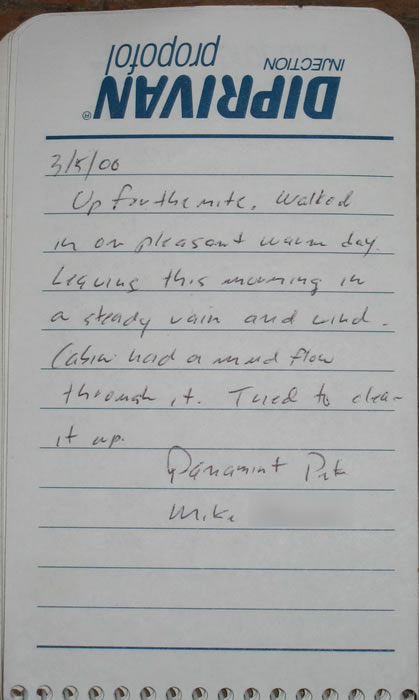 DIPRIVAN®
INJECTION
propofol
3/5/00
Up for the nite. Walked
in on pleasant warm day.
Leaving this morning in
a steady rain and wind.
Cabin had a mud flow
through it. Tried to clean
it up.
Panamint Pete
Mike